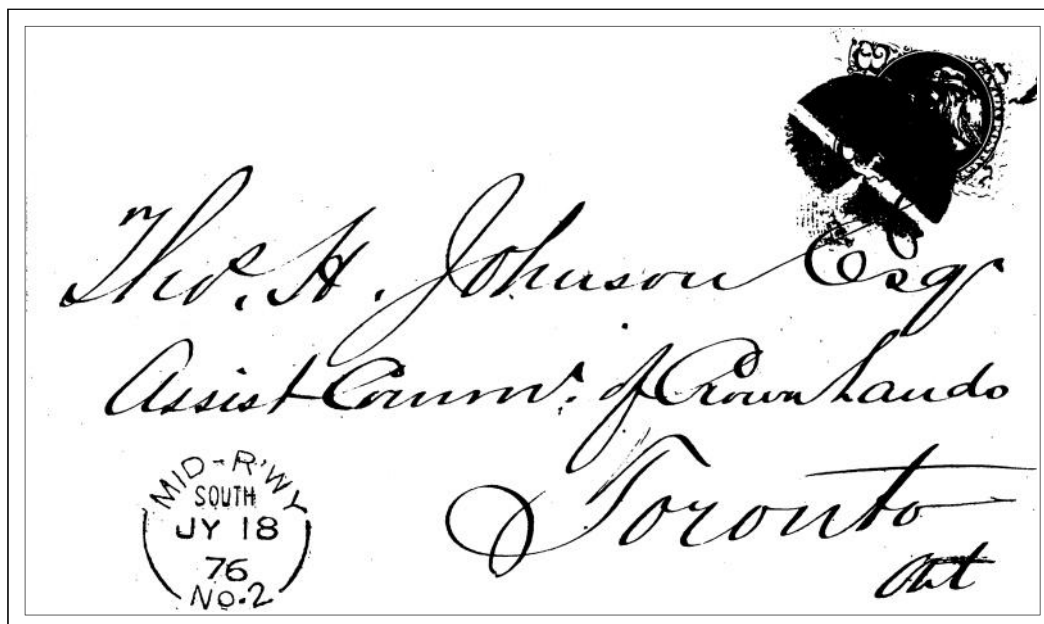 Thos. H. Johnson Esq
Assist Commr. of Crown Lands
Toronto
Ont
MID-R'WY
SOUTH
JY 18
76
No.2